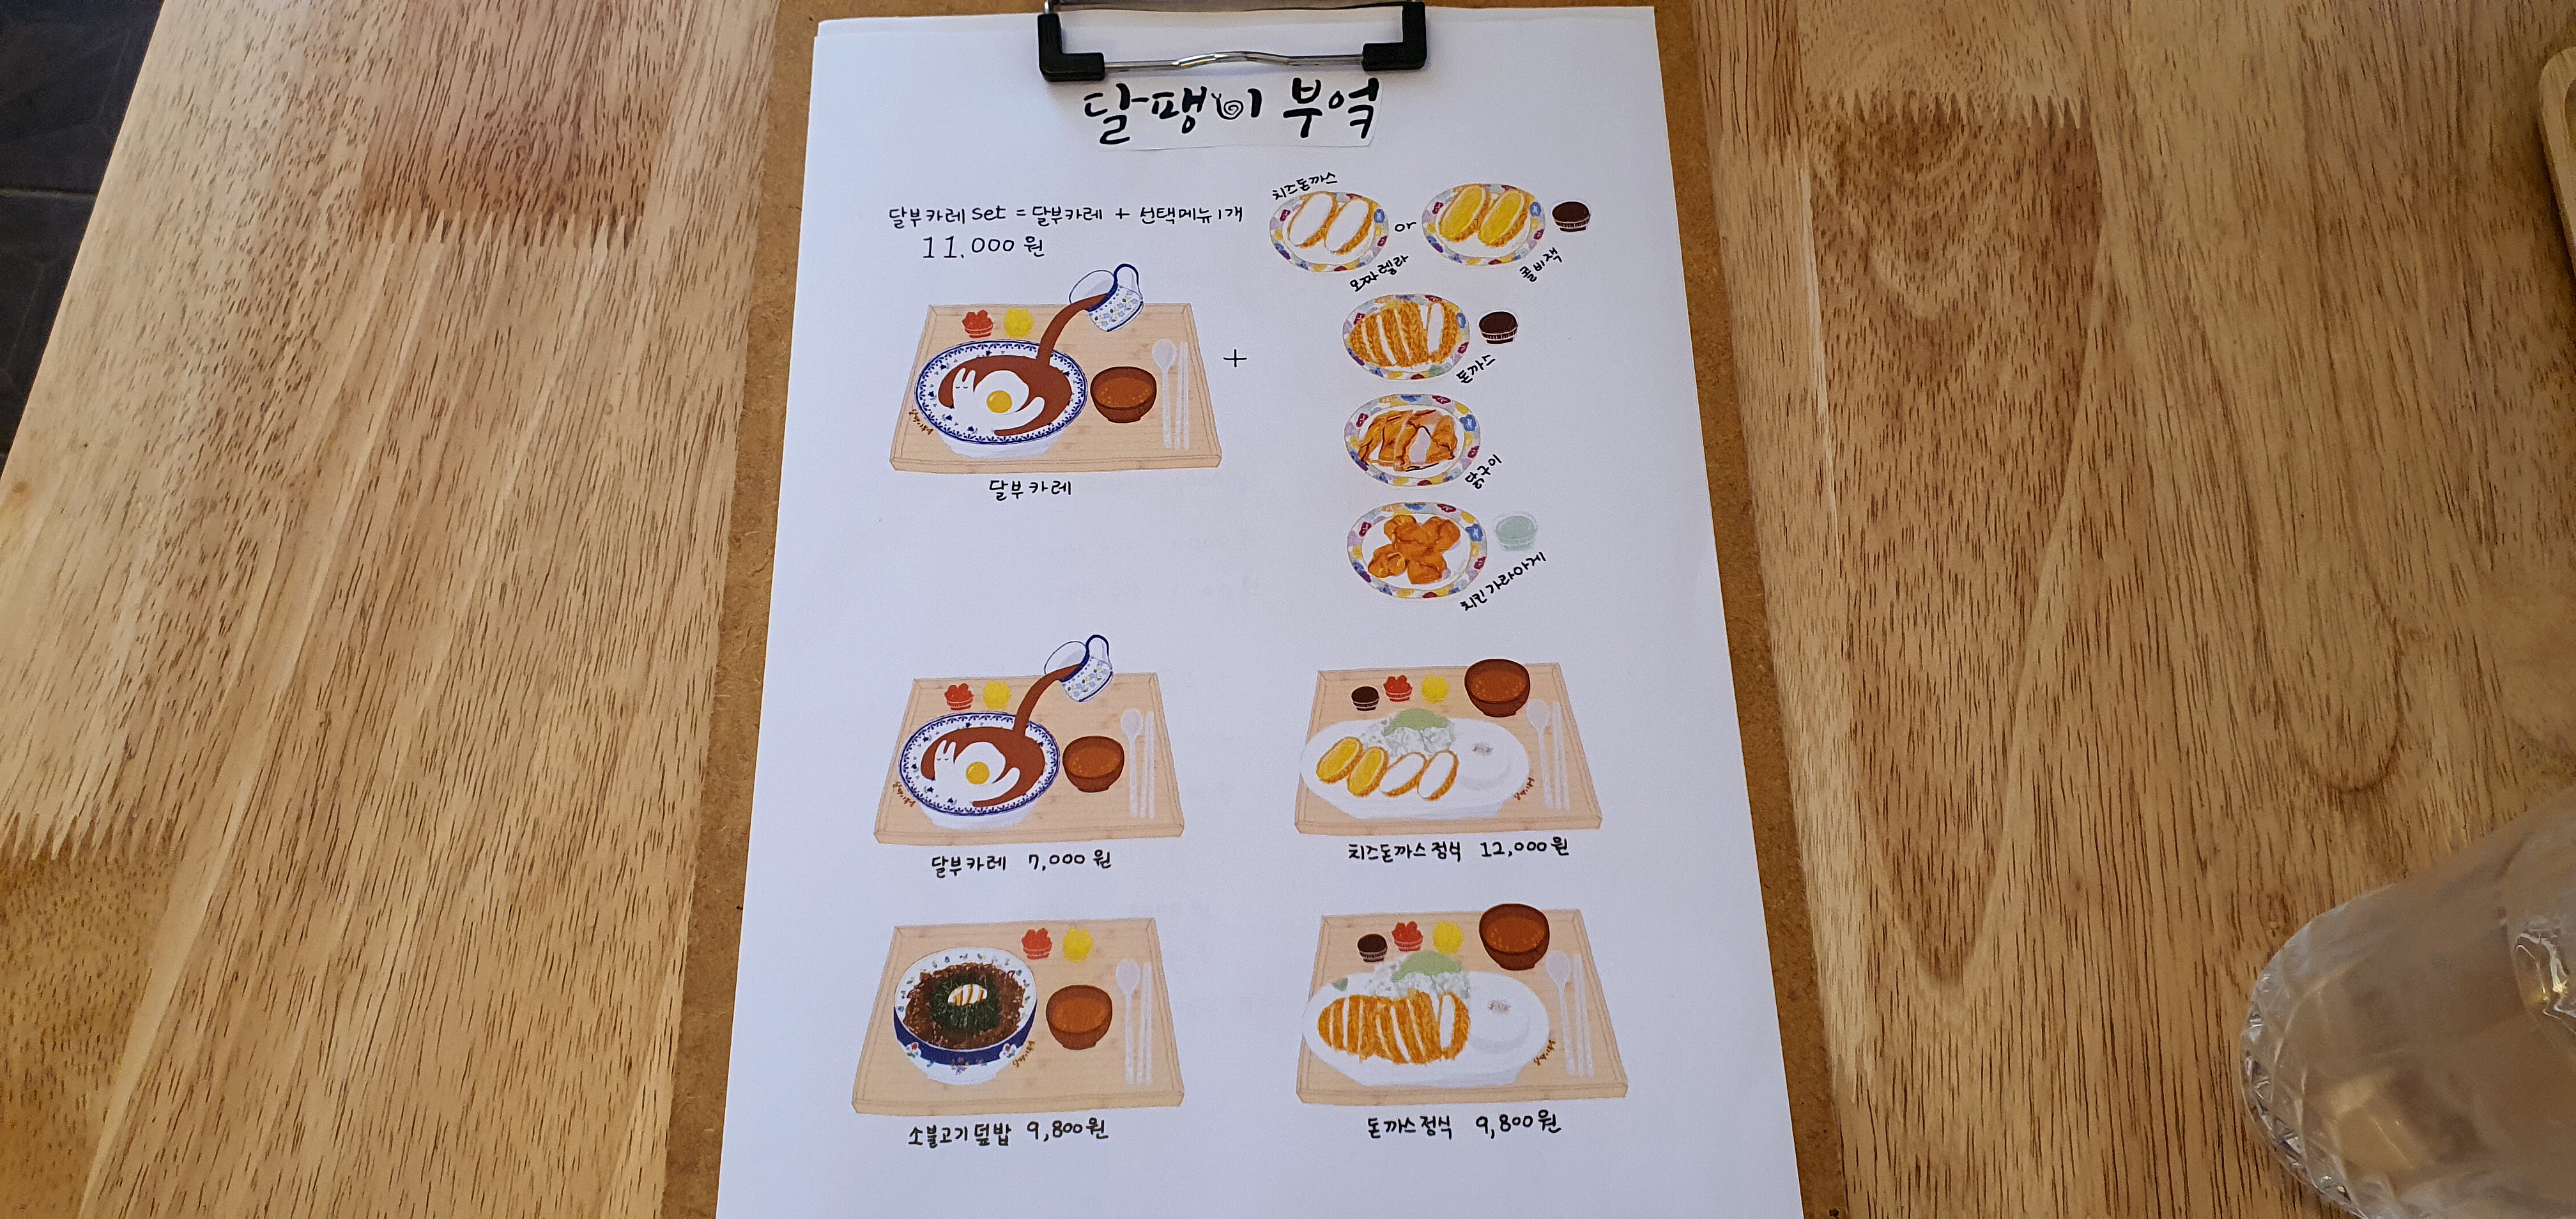 달팽이 부엌
달부카레 set = 달부카레 + 선택메뉴 1개
11.000 원
치즈돈까스
or
모짜렐라
콜비잭
+
돈까스
닭구이
치킨 가라아게
달부카레
달부카레 7,000 원
치즈돈까스 정식 12,000 원
소불고기 덮밥 9,800 원
돈까스 정식 9,800 원